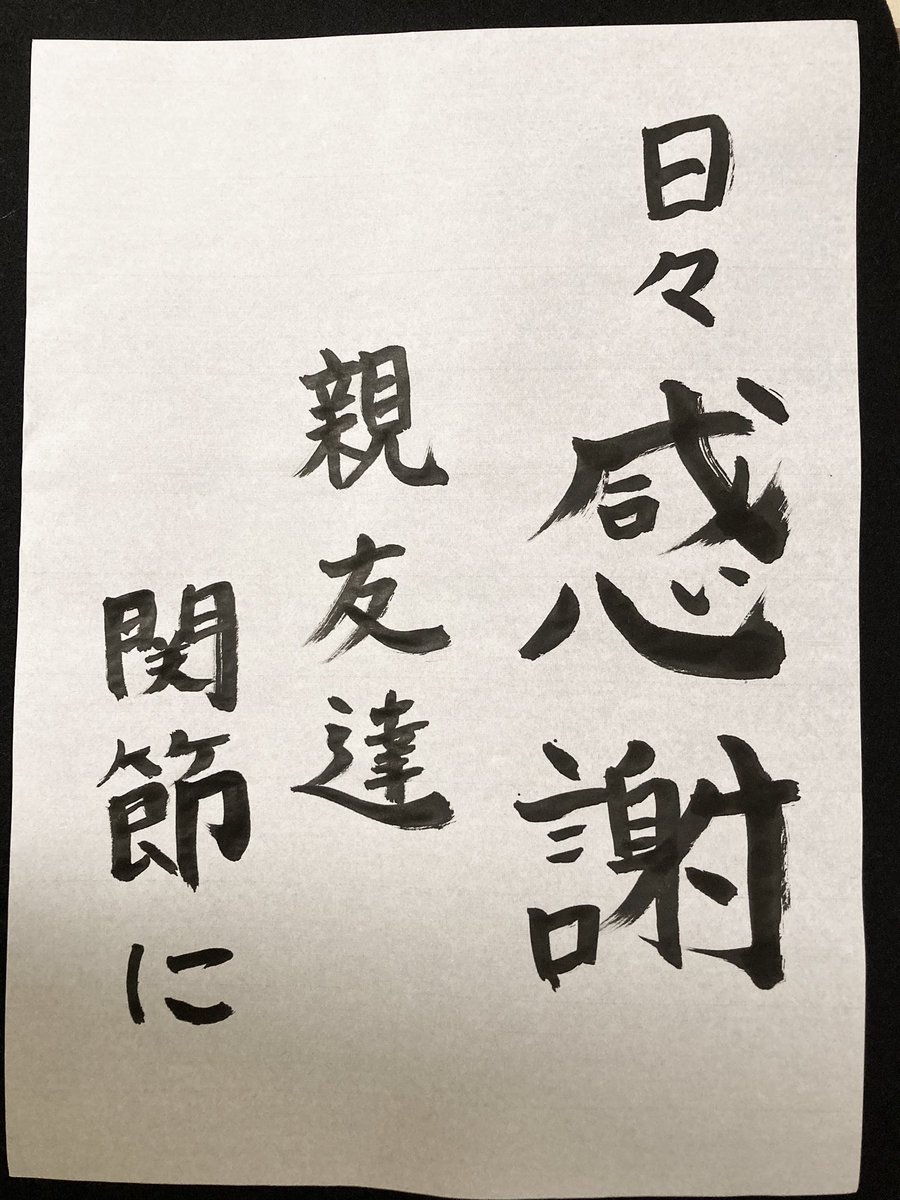 日々感謝
親友達
関節に